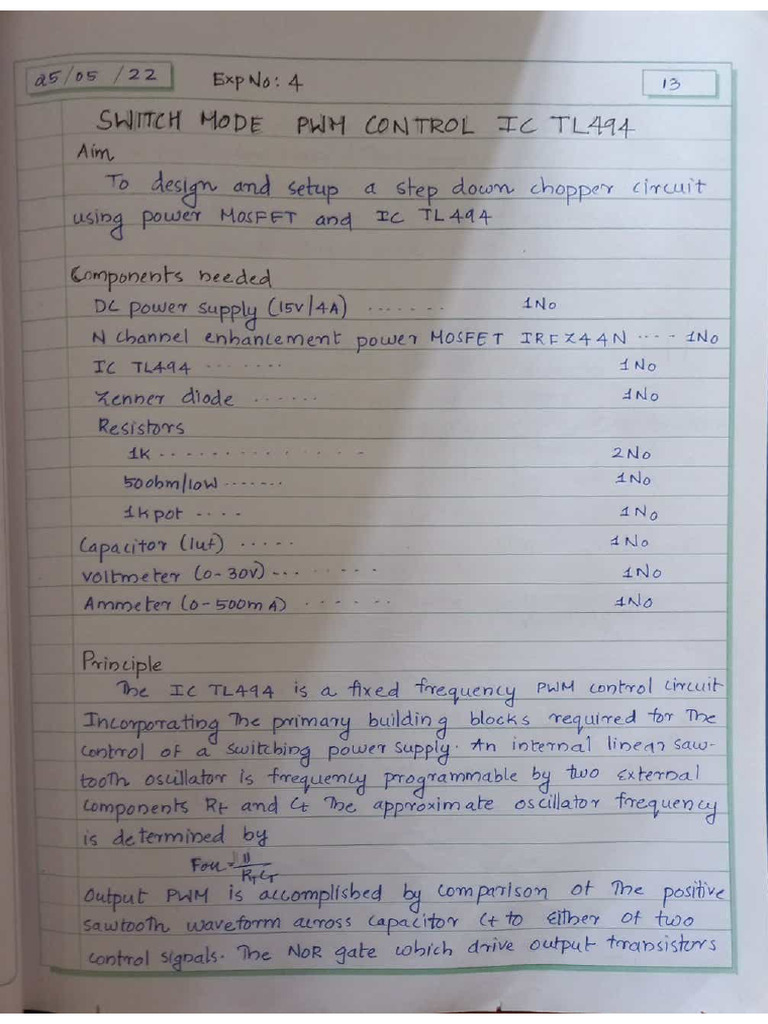 25/05/22 Exp No: 4 13
SWITCH MODE PWM CONTROL IC TL494
Aim
To design and setup a step down chopper circuit
using power MOSFET and IC TL494
Components needed
DC power supply (15V/4A) ....... 1No
N channel enhancement power MOSFET IRFZ44N .... 1No
IC TL494 ....... 1No
Zenner diode ...... 1No
Resistors
1K .............. 2No
50ohm/10W ....... 1No
1K pot .... 1No
Capacitor (1uf) ..... 1No
Voltmeter (0-30V) ........ 1No
Ammeter (0-500mA) ...... 1No
Principle
The IC TL494 is a fixed frequency PWM control circuit
Incorporating The primary building blocks required for The
control of a switching power supply. An internal linear saw-
tooth oscillator is frequency programmable by two External
components Rt and Ct The approximate oscillator frequency
is determined by
RTCT
Output PWM is accomplished by comparison of The positive
sawtooth waveform across capacitor Ct to Either of two
control signals. The NOR gate which drive output transistors